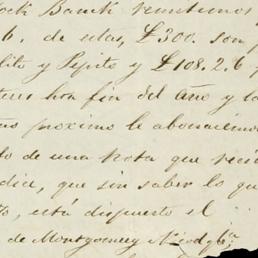 ock Bank remitimos
6, de ellas, £300. son p
lito y Pepito y £108.2.6 p
hra fin del año y la
proximo le abonaremos
do de una nota que reci
dice, que sin saber lo que
está dispuesto el
de Montgomery Nicod y Cia